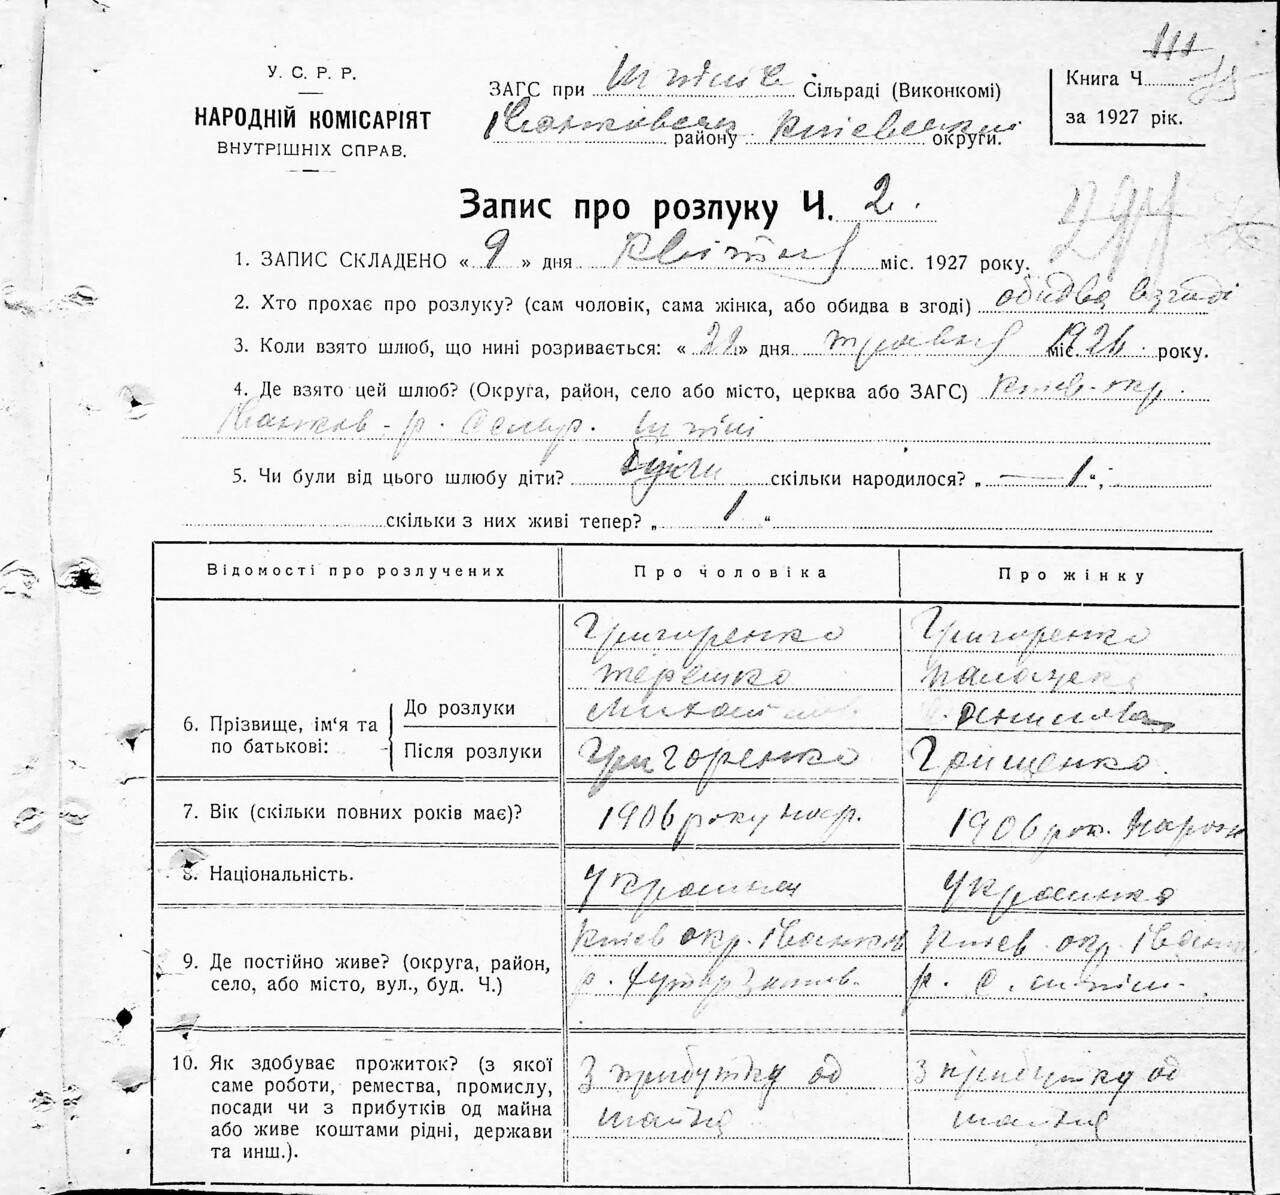 У. С. Р. Р.
НАРОДНІЙ КОМІСАРІЯТ
ВНУТРІШНІХ СПРАВ.
ЗАГС при Сільраді (Виконкомі)
району округи.
Книга Ч.
за 1927 рік.
Запис про розлуку Ч. 2.
1. ЗАПИС СКЛАДЕНО « 9 » дня Квітня міс. 1927 року.
2. Хто прохає про розлуку? (сам чоловік, сама жінка, або обидва в згоді) обидва взгоді
3. Коли взято шлюб, що нині розривається: « 22 » дня травня міс. 1926 року.
4. Де взято цей шлюб? (Округа, район, село або місто, церква або ЗАГС) Київ. окр.
Іванков - р.
5. Чи були від цього шлюбу діти? скільки народилося? „ — 1 “;
скільки з них живі тепер? „ 1 “
Відомості про розлучених
Про чоловіка
Про жінку
6. Прізвище, ім‘я та по батькові:
До розлуки
Після розлуки
Григоренко
Терешко
Григоренко
Григоренко
Грищенко.
7. Вік (скільки повних років має)?
1906 року нар.
1906 рок. Народ
8. Національність.
Українец
Украинка
9. Де постійно живе? (округа, район,
село, або місто, вул., буд. Ч.)
Київ окр. Іванков
р. Хутор
Київ. окр. Іванк
р. с.
10. Як здобуває прожиток? (з якої
саме роботи, ремества, промислу,
посади чи з прибутків од майна
або живе коштами рідні, держави
та инш.).
З прибутку од
майна
З прибутку од
майна